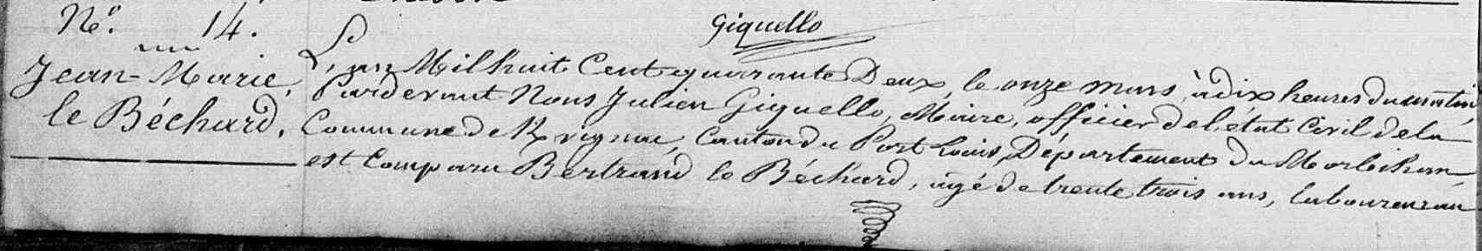 Giquello
Nº. 14.
Jean-Marie
le Béchard.
L'an Mil huit Cent quarante Deux, le onze mars, à dix heures du matin,
Pardevant Nous Julien Giquello, Maire, officier de l'etat Civil de la
Commune de Kvignac, Canton du Port Louis, Département du Morbihan
est Comparu Bertrand le Béchard, âgé de trente trois ans, laboureur au